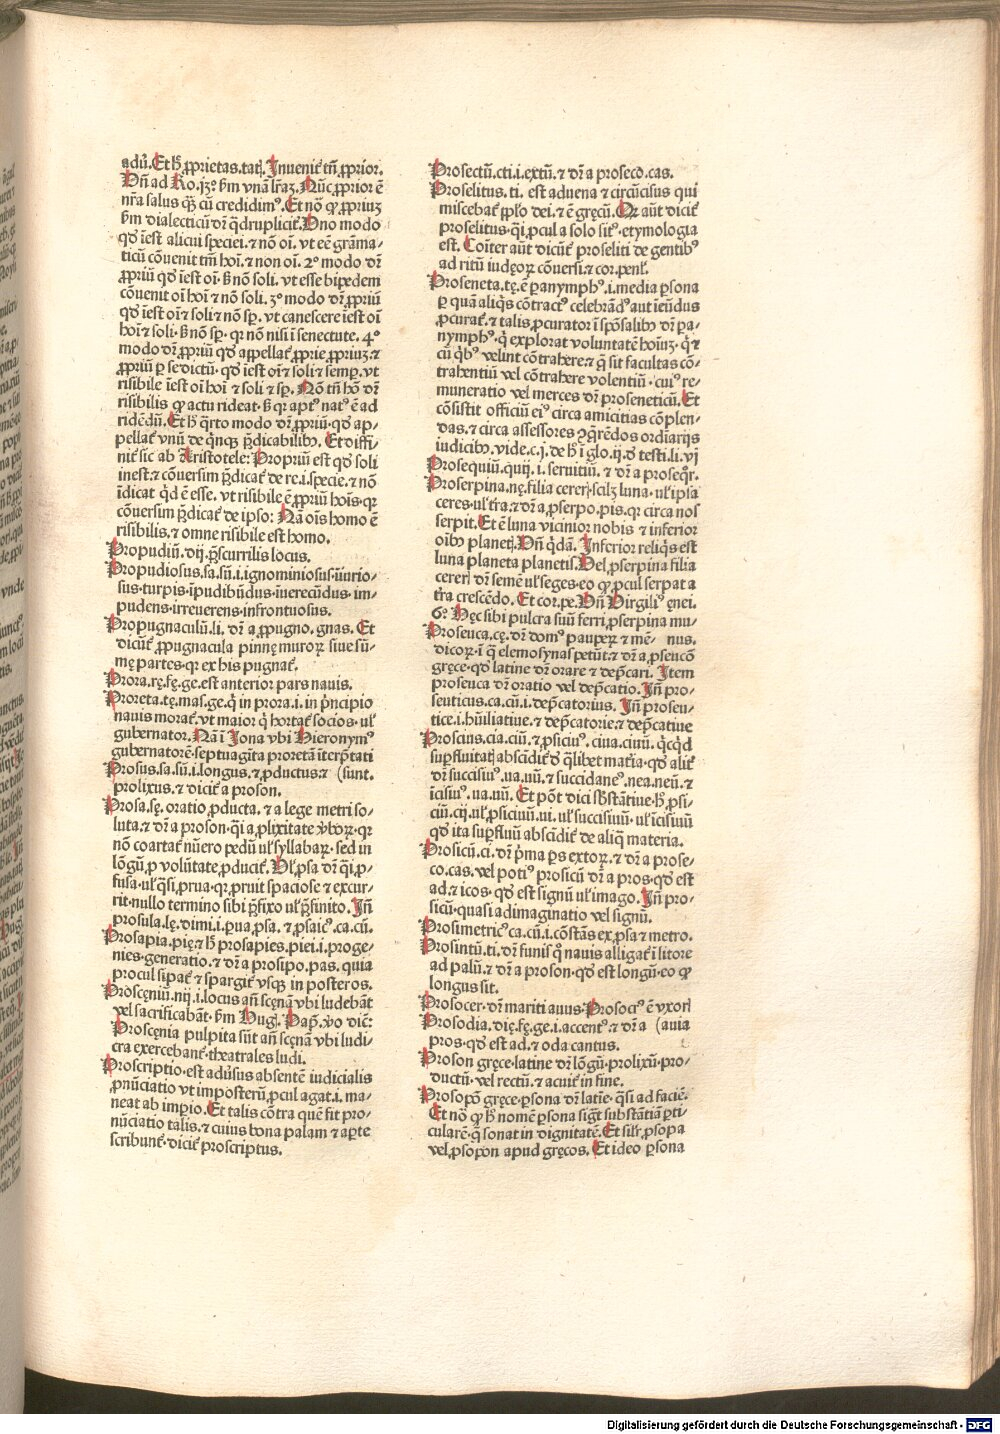 adũ. Et hꝰ ꝓprietas.tatꝭ. Inueniť tñ ꝓprior.
Dñ ad Ro.iȝ° ẜm vnã lr̃aȝ. Nũc ꝓprior ẽ
nr̃a salus qꝫ̃ cũ credidimꝰ. Et nõ ꝙ ꝓpriuȝ
ẜm dialecticũ dr̃ qdruplicit̃. Uno modo
qđ ĩest alicui speciei.⁊ nõ oĩ. vt eẽ grãma⸗
ticũ cõuenit tm̃ hoĩ.⁊ non oĩ. 2° modo dr̃
ꝓpriũ qđ ĩest oĩ.ẜ nõ soli. vt esse bipedem
cõuenit oĩ hoĩ ⁊ nõ soli. 3° modo dr̃ ꝓpriũ
qđ ĩest oĩ ⁊ soli ⁊ nõ sꝑ. vt canescere ĩest oĩ
hoĩ ⁊ soli.ẜ nõ sꝑ. qꝛ nõ nisi ĩ senectute. 4°
modo dr̃ ꝓpriũ qđ appellať ꝓprie ꝓpriuȝ.⁊
ꝓpriũ ꝑ se dictũ. qđ ĩest oĩ ⁊ soli ⁊ semꝑ. vt
risibile ĩest oĩ hoĩ ⁊ soli ⁊ sꝑ. Nõ tñ hõ dr̃
risibilis ꝙ actu rideat. ẜ qꝛ aptꝰ natꝰ ẽ ad
ridẽdũ. Et h̃ q̃rto modo dr̃ ꝓpriũ. qđ ap⸗
pellať vnũ de q̃nqꝫ p̃dicabilibꝫ. Et diffi⸗
niť sic ab Aristotele: Propriũ est qđ soli
inest.⁊ cõuersim p̃dicať de re.i.specie.⁊ nõ
ĩdicat qd ẽ esse. vt risibile ẽ ꝓpriũ hoĩs.qꝛ
cõuersim p̃dicať de ipso: Nã oĩs homo ẽ
risibilis.⁊ omne risibile est homo.
Propudiũ. dij. p̃scurrilis locus.
Propudiosus.sa.sũ.i.ignominiosus.iniurio⸗
sus.turpis.ĩpudibũdus.inuerecũdus. im⸗
pudens.irreuerens.infrontuosus.
Propugnaculũ.li. dr̃ a ꝓpugno.gnas. Et
dicũť ꝓpugnacula pinnę muroꝝ siue sũ⸗
mę partes.qꝛ ex his pugnať.
Prora.rę.fę.ge.est anterior pars nauis.
Proreta.tę.mas.ge.q̃ in prora.i.in p̃ncipio
nauis morať.vt maior q̃ hortať socios. ul̃
gubernator. Nã ĩ Iona vbi Hieronymꝰ
gubernatorẽ.septuagĩta proretã ĩterp̃tati
Prosus.sa.sũ.i.longus.⁊ ꝓductus.⁊ (sunt.
prolixus.⁊ diciť a proson.
Prosa.sę. oratio ꝓducta. ⁊ a lege metri so⸗
luta.⁊ dr̃ a proson.qi a ꝓlixitate v̓boꝝ. qꝛ
nõ coartať nũero pedũ ul̃ syllabaꝝ. sed in
lõgũ ꝓ volũtate ꝓduciť. Ul̃ ꝓsa dr̃ q̃i ꝓ⸗
fusa.ul̃ q̃si ꝓrua.qꝛ ꝓruit spaciose ⁊ excur⸗
rit.nullo termino sibi p̃fixo ul̃ p̃finito. Iñ
prosula.lę.dimi.i.ꝑua ꝓsa. ⁊ ꝓsaicꝰ.ca.cũ.
Prosapia.pię.⁊ h̃ prosapies.piei.i.proge⸗
nies.generatio.⁊ dr̃ a prosipo.pas. quia
procul sipať ⁊ spargiť vsqꝫ in posteros.
Proscęniũ.nij.i.locus añ scęnã vbi ludebãt
vel sacrificabãt. ẜm Hugꝭ. Papꝭ.v̓o dic̃:
Proscęnia pulpita sũt añ scęnã vbi ludi⸗
cra exercebanť.theatrales ludi.
Proscriptio.est aduẽsus absentẽ iudicialis
ꝓnũciatio vt imposterũ ꝓcul agat.i. ma⸗
neat ab imꝑio. Et talis cõtra quẽ fit pro⸗
nũciatio talis.⁊ cuius bona palam ⁊ aꝑte
scribunť.diciť proscriptus.
Prosectũ.cti.i.extũ.⁊ dr̃ a proseco.cas.
Proselitus.ti. est aduena ⁊ circũcisus qui
miscebať ꝓplo dei.⁊ ẽ gręcũ. Qꝛ aũt diciť
proselitus.q̃i ꝓcul a solo sitꝰ.etymologia
est. Coĩter aũt dicũť proseliti de gentibꝰ
ad ritũ iudęoꝝ cõuersi.⁊ cor.penl̃.
Proseneta.tę.ẽ ꝑanymphꝰ.i.media ꝑsona
ꝑ quã aliq̃s cõtractꝰ celebrãdꝰ aut ĩeũdus
ꝓcurať.⁊ talis ꝓcurator ĩ spõsalibꝫ dr̃ ꝑa⸗
nymphꝰ.q̃ explorat voluntatẽ hoĩuȝ.q̃ ⁊
cũ q̃bꝰ velint cõtrahere.⁊ q̃ sit facultas cõ⸗
trahentiũ vel cõtrahere volentiũ.cuiꝰ re⸗
muneratio vel merces dr̃ proseneticũ. Et
cõsistit officiũ eiꝰ circa amicitias cõplen⸗
das.⁊ circa assessores ꝯgregẽdos ordiarijs
iudicibꝫ. vide.c.j.de h̃ ĩ glo.ij.đ testi.li.vj
Prosequiũ.quij.i.seruitiũ.⁊ dr̃ a proseq̃r.
Proserpina.nę.filia cerer̃.scilȝ luna. ul̃ ipsa
ceres.ul̃ t̃ra.⁊ dr̃ a ꝓserpo.pis.qꝛ circa nos
serpit. Et ẽ luna vicinior nobis ⁊ inferior
oibꝫ planetꝭ. Dñ qdã. Inferior reliq̃s est
luna planeta planetis. Uel ꝓserpina filia
cerer̃ dr̃ semẽ ul̃ seges.eo ꝙ ꝓcul serpat a
t̃ra crescẽdo. Et cor.pe. Dñ Uirgiliꝰ ęnei.
6° Hęc sibi pulcra suũ ferri ꝓserpina mu⸗
Proseuca.cę.dr̃ domꝰ pauꝑeꝝ ⁊ mẽ⸗ nus.
dicoꝝ.ĩ q̃ elemosynas petũt.⁊ dr̃ a ꝓseucõ
gręce.qđ latine dr̃ orare ⁊ dep̃cari. Item
proseuca dr̃ oratio vel dep̃catio. Iñ pro⸗
seuticus.ca.cũ.i.dep̃catorius. Iñ proseu⸗
tice.i.hũiliatiue.⁊ dep̃catorie.⁊ dep̃catiue
Proscius.cia.ciũ.⁊ ꝓsiciuꝰ. ciua.ciuũ. qcqd
suꝑfluitatꝭ abscidiť đ q̃libet mat̃ia.qđ aliť
dr̃ succisiuꝰ.ua.uũ.⁊ succidaneꝰ.nea.neũ.⁊
ĩcisiuꝰ.ua.uũ. Et põt dici sb̃stãtiue.h̃ ꝓsi⸗
ciũ.cij.ul̃ ꝓsiciuũ.ui.ul̃ succisiuũ.ul̃ ĩcisiuũ
qđ ita suꝑfluũ abscidiť de aliq̃ materia.
Prosicũ.ci. dr̃ p̃ma ꝑs extoꝝ.⁊ dr̃ a prose⸗
co.cas.vel potiꝰ prosicũ dr̃ a pros.qđ est
ad.⁊ icos. qđ est signũ ul̃ imago. Iñ pro⸗
sicũ.quasi adimaginatio vel signũ.
Prosimetricꝰ.ca.cũ.i.cõstãs ex ꝓsa ⁊ metro.
Prosintũ.ti.dr̃ funis q̃ nauis alligať ĩ litore
ad palũ.⁊ dr̃ a proson.qđ est longũ.eo ꝙ
longus sit.
Prosocer.dr̃ mariti auus.Prosocrꝰ ẽ vxorꝭ
Prosodia.dię.fę.ge.i.accentꝰ.⁊ dr̃ a (auia
pros.qđ est ad.⁊ oda cantus.
Proson gręce.latine dr̃ lõgũ.prolixũ.pro⸗
ductũ.vel rectũ.⁊ acuiť in fine.
Prosopõ gręce.ꝑsona dr̃ latĩe. q̃si ad faciẽ.
Et nõ ꝙ h̃ nomẽ ꝑsona sigt̃ substãtiã ꝑti⸗
cularẽ.q̃ sonat in dignitatẽ. Et sil̃r ꝓsopa
vel ꝓsopon apud gręcos. Et ideo ꝑsona
Digitalisierung gefördert durch die Deutsche Forschungsgemeinschaft - DFG